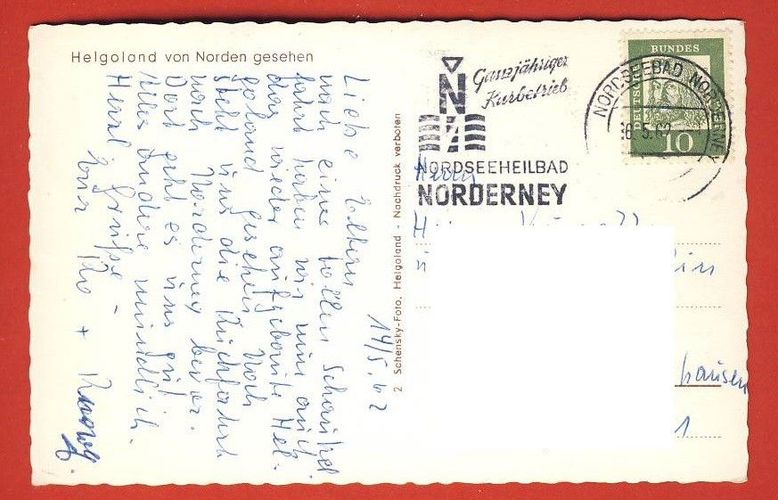 Helgoland von Norden gesehen
Liebe Eltern
nach einer tollen Schaukel
fahrt haben wir nun auch
das wieder aufgebaute Hel-
goland gesehen. Noch
steht uns die Rückfahrt
nach Norderney bevor.
Dort geht es uns gut
Alles andere mündlich.
Herzl. Grüße -
Eure Ilo +
14/5.62
2 Schensky-Foto, Helgoland - Nachdruck verboten
Ganzjähriger
Kurbetrieb
N
NORDSEEHEILBAD
NORDERNEY
NORDSEEBAD NORDERNEY
16.5.62
DEUTSCHE
BUNDES
10
Herrn
hausen
1